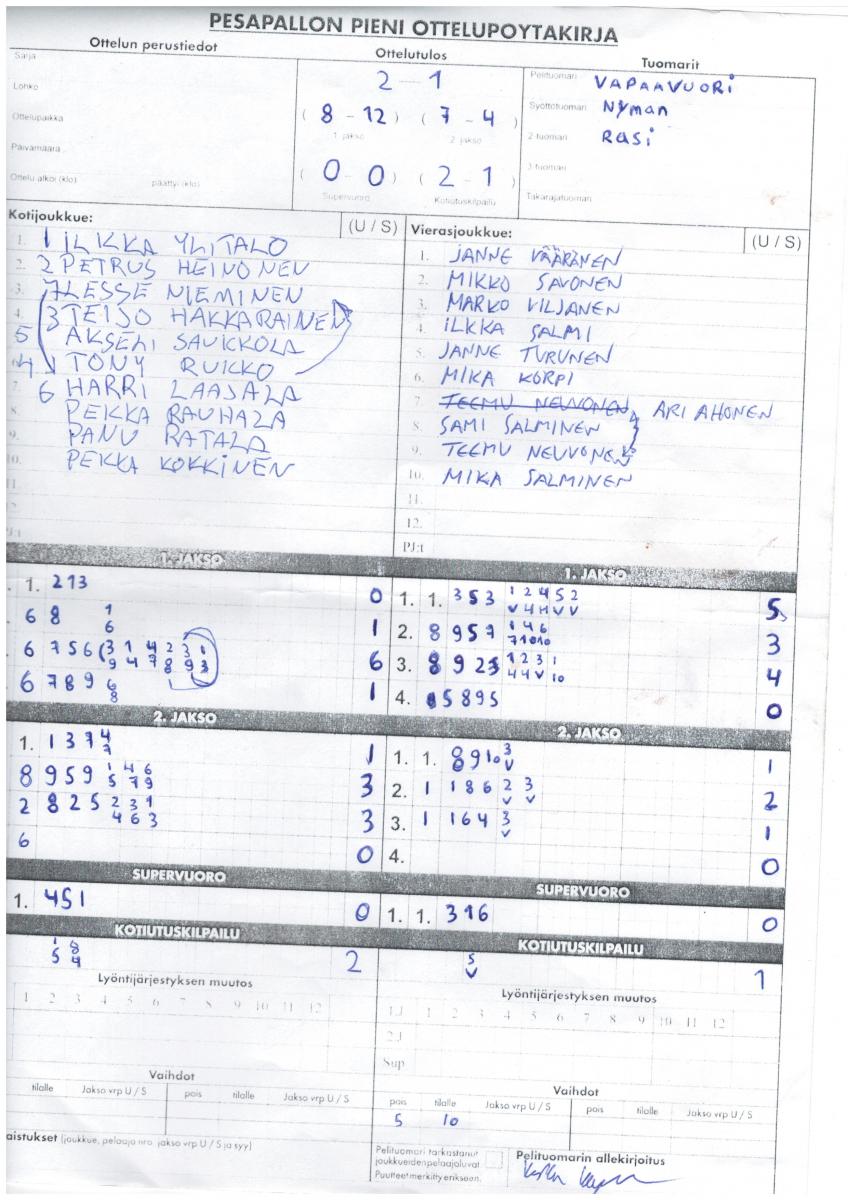 PESAPALLON PIENI OTTELUPOYTAKIRJA
Ottelun perustiedot
Ottelutulos
Tuomarit
Sarja
Lohko
Ottelupaikka
Päivämäärä
Ottelu alkoi (klo) päättyi (klo)
2 - 1
( 8 - 12 ) ( 7 - 4 )
1 jakso 2 jakso
( 0 - 0 ) ( 2 - 1 )
Supervuoro Kotiutuskilpailu
Pelituomari VAPAAVUORI
Syöttötuomari Nyman
2-tuomari Rasi
3-tuomari
Takarajatuomari
Kotijoukkue: (U / S)
1. 1 ILKKA YLITALO
2. 2 PETRUS HEINONEN
3. 7 LESSE NIEMINEN
4. 3 TEIJO HAKKARAINEN
5 AKSELI SAUKKOLA
4 TONY RUIKKO
7. 6 HARRI LAAJALA
8. PEKKA RAUHALA
9. PANU RATALA
10. PEKKA KOKKINEN
11.
12.
PJ:t
Vierasjoukkue: (U / S)
1. JANNE VÄÄRÄNEN
2. MIKKO SAVONEN
3. MARKO VILJANEN
4. ILKKA SALMI
5. JANNE TURUNEN
6. MIKA KORPI
7. TEEMU NEUVONEN ARI AHONEN
8. SAMI SALMINEN
9. TEEMU NEUVONEN
10. MIKA SALMINEN
11.
12.
PJ:t
1. JAKSO
1. 213 0
6 8 1 1
6
6 756( 3 1 4 2 3 1 6
9 4 7 8 9 3
6 789 6 1
8
1. JAKSO
1. 1. 353 1 2 4 5 2 5
2. 8 957 1 4 6 3
7 10 10
3. 8 923 1 2 3 1 4
4 4 V 10
4. 5895 0
2. JAKSO
1. 137 4 1
7
8 959 1 4 6 3
5 7 9
2 825 2 3 1 3
4 6 3
6 0
2. JAKSO
1. 1. 8 9 10 3 1
V
2. 1 186 2 3 2
V V
3. 1 164 3 1
V
4. 0
SUPERVUORO
1. 451 0
SUPERVUORO
1. 1. 316 0
KOTIUTUSKILPAILU
1 8 2
5 4
KOTIUTUSKILPAILU
5 1
V
Lyöntijärjestyksen muutos
1 2 3 4 5 6 7 8 9 10 11 12
Lyöntijärjestyksen muutos
1.J 1 2 3 4 5 6 7 8 9 10 11 12
2.J
Sup
Vaihdot
tilalle Jakso vrp U / S pois tilalle Jakso vrp U / S
Vaihdot
pois tilalle Jakso vrp U / S pois tilalle Jakso vrp U / S
5 10
aistukset (joukkue, pelaaja nro. jakso vrp U / S ja syy)
Pelituomari tarkastanut
joukkueiden pelaajaluvat
Puutteet merkitty erikseen.
Pelituomarin allekirjoitus